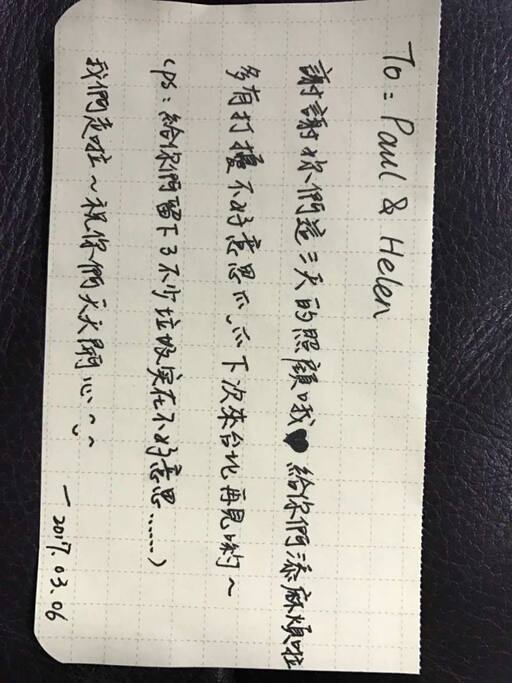 To: Paul & Helen
謝謝你們這三天的照顧哦♥ 給你們添麻煩啦
多有打擾不好意思爪爪下次來台北再見喲~
(ps:給你們留下了不少垃圾实在不好意思……)
我們走啦~祝你們天天開心^^
— 2017.03.06